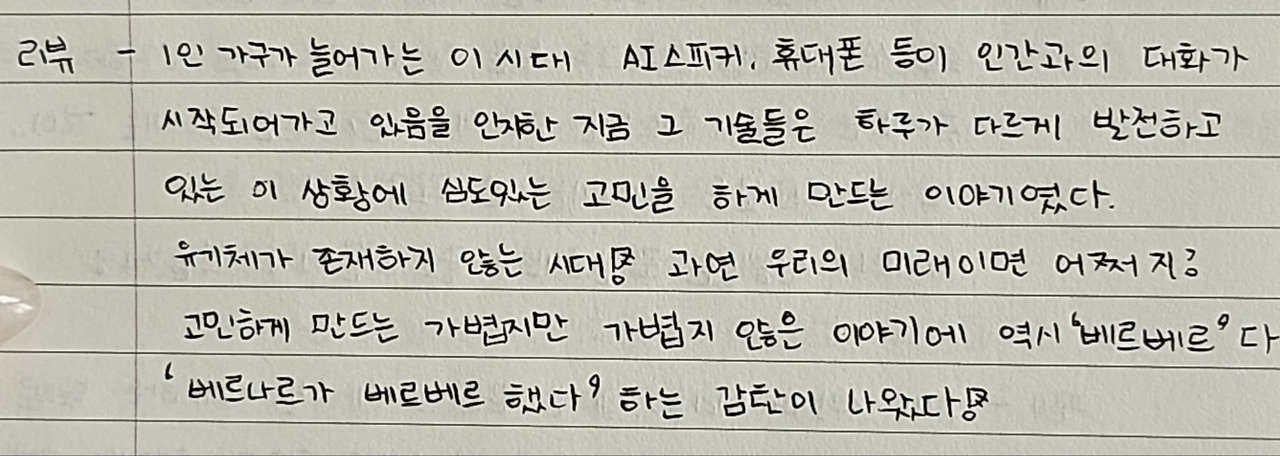 리뷰 - 1인 가구가 늘어가는 이 시대 AI스피커, 휴대폰 등이 인간과의 대화가
시작되어가고 있음을 인지한 지금 그 기술들은 하루가 다르게 발전하고
있는 이 상황에 심도있는 고민을 하게 만드는 이야기였다.
유기체가 존재하지 않는 시대! 과연 우리의 미래이면 어쩌지?
고민하게 만드는 가볍지만 가볍지 않은 이야기에 역시 '베르베르'다
'베르나르가 베르베르 했다' 하는 감탄이 나왔다!